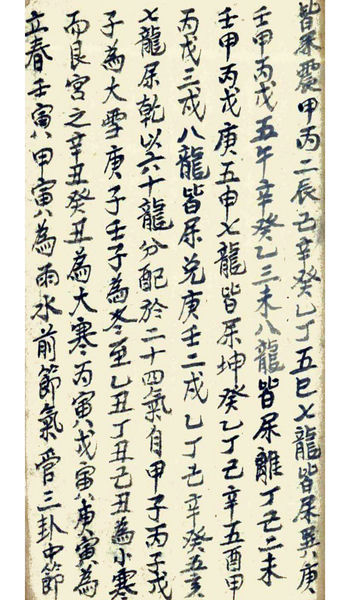 皆屬震甲丙二辰己辛癸乙丁五巳七龍皆屬巽庚
壬甲丙戊五午辛癸乙三未八龍皆屬離丁己二未
壬甲丙戊庚五申七龍皆屬坤癸乙丁己辛五酉甲
丙戊三戌八龍皆屬兌庚壬二戌乙丁己辛癸五亥
七龍屬乾以六十龍分配於二十四氣自甲子丙子戊
子為大雪庚子壬子為冬至乙丑丁丑己丑為小寒
而艮宮之辛丑癸丑為大寒丙寅戊寅庚寅為
立春壬寅甲寅為雨水前節氣管三卦中節